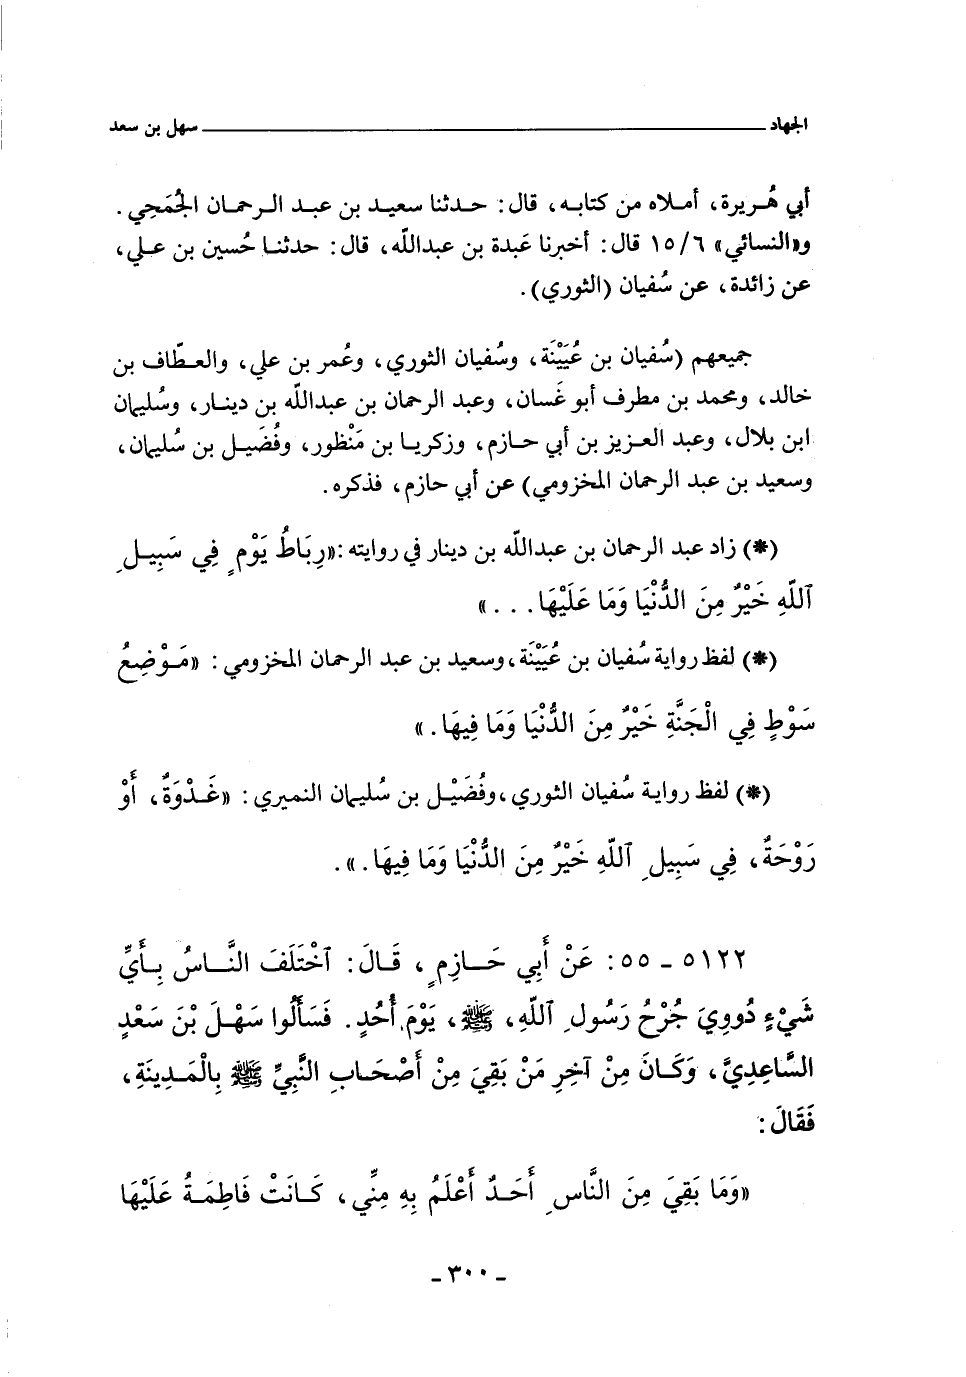 الجهاد ــــــــــــــــــــ سهل بن سعد
أبي هُريرة، أملاه من كتابه، قال: حدثنا سعيد بن عبد الرحمان الجُمَحِي.
و«النسائي» ٦/١٥ قال: أخبرنا عَبدة بن عبدالله، قال: حدثنا حُسين بن علي،
عن زائدة، عن سُفيان (الثوري).
جميعهم (سُفيان بن عُيَيْنَة، وسُفيان الثوري، وعُمر بن علي، والعطّاف بن
خالد، ومحمد بن مطرف أبو غَسان، وعبد الرحمان بن عبدالله بن دينار، وسُليمان
ابن بلال، وعبد العزيز بن أبي حازم، وزكريا بن مَنْظور، وفُضَيل بن سُليمان،
وسعيد بن عبد الرحمان المخزومي) عن أبي حازم، فذكره.
(*) زاد عبد الرحمان بن عبدالله بن دينار في روايته: «رِبَاطُ يَوْمٍ فِي سَبِيلِ
ٱللّهِ خَيْرٌ مِنَ الدُّنْيَا وَمَا عَلَيْهَا. . . »
(*) لفظ رواية سُفيان بن عُيَيْنَة، وسعيد بن عبد الرحمان المخزومي: «مَوْضِعُ
سَوْطٍ فِي الْجَنَّةِ خَيْرٌ مِنَ الدُّنْيَا وَمَا فِيهَا.»
(*) لفظ رواية سُفيان الثوري، وفُضَيْل بن سُليمان النميري: «غَدْوَةٌ، أَوْ
رَوْحَةٌ، فِي سَبِيلِ ٱللّهِ خَيْرٌ مِنَ الدُّنْيَا وَمَا فِيهَا.».
٥١٢٢ ـ ٥٥: عَنْ أَبِي حَازِمٍ، قَالَ: ٱخْتَلَفَ النَّاسُ بِأَيِّ
شَيْءٍ دُووِيَ جُرْحُ رَسُولِ ٱللّهِ، ﷺ، يَوْمَ أُحُدٍ. فَسَأَلُوا سَهْلَ بْنَ سَعْدٍ
السَّاعِدِيَّ، وَكَانَ مِنْ آخِرِ مَنْ بَقِيَ مِنْ أَصْحَابِ النَّبِيِّ ﷺ بِالْمَدِينَةِ،
فَقَالَ:
«وَمَا بَقِيَ مِنَ النَّاسِ أَحَدٌ أَعْلَمُ بِهِ مِنِّي، كَانَتْ فَاطِمَةُ عَلَيْهَا
ـ ٣٠٠ ـ